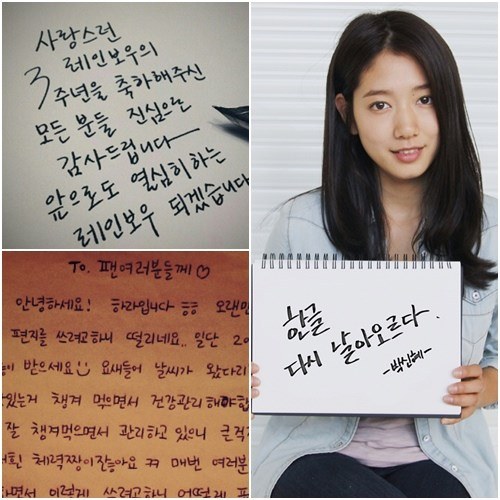 사랑스런
레인보우의
3주년을 축하해주신
모든 분들 진심으로
감사드립니다
앞으로도 열심히하는
레인보우 되겠습니다
To. 팬여러분들께♡
안녕하세요! 하라입니다 ㅎㅎ 오랜만
편지를 쓰려고하니 떨리네요.. 일단 20
이 받으세요 요새들어 날씨가 왔다리
있는거 챙겨 먹으면서 건강관리 해야합
잘 챙겨먹으면서 관리하고 있으니 큰걱
체력짱이잖아요 ㅋㅋ 매번 여러분
하면서 이렇게 쓰려고하니 어떻게
한글
다시 날아오르다.
-박신혜-